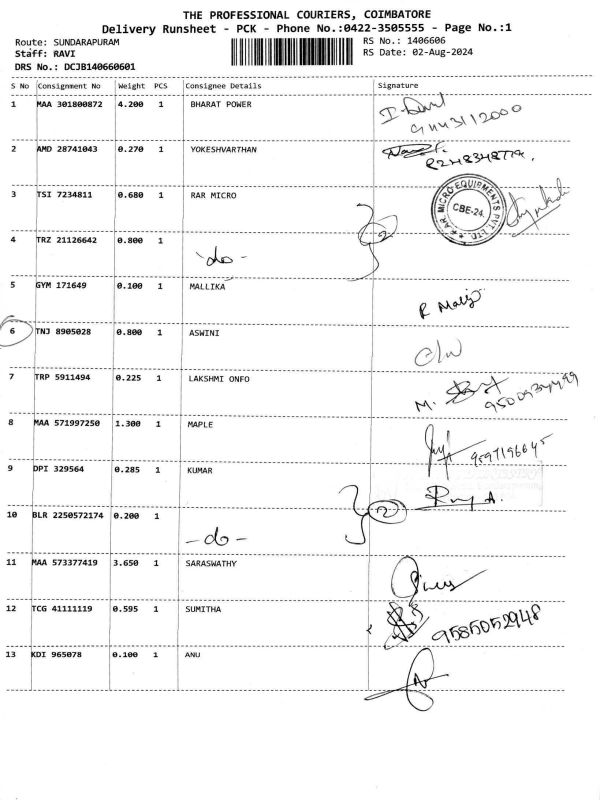 THE PROFESSIONAL COURIERS, COIMBATORE
Delivery Runsheet - PCK - Phone No.:0422-3505555 - Page No.:1
Route: SUNDARAPURAM
RS No.: 1406606
Staff: RAVI
RS Date: 02-Aug-2024
DRS No.: DCJB140660601
S No Consignment No Weight PCS Consignee Details Signature
1 MAA 301800872 4.200 1 BHARAT POWER
2 AMD 28741043 0.270 1 YOKESHVARTHAN
3 TSI 7234811 0.680 1 RAR MICRO
CBE-24.
2
4 TRZ 21126642 0.800 1
-do-
5 GYM 171649 0.100 1 MALLIKA
6 TNJ 8905028 0.800 1 ASWINI
7 TRP 5911494 0.225 1 LAKSHMI ONFO
8 MAA 571997250 1.300 1 MAPLE
9 DPI 329564 0.285 1 KUMAR
2
10 BLR 2250572174 0.200 1
-do-
11 MAA 573377419 3.650 1 SARASWATHY
12 TCG 41111119 0.595 1 SUMITHA
9585052948
13 KDI 965078 0.100 1 ANU